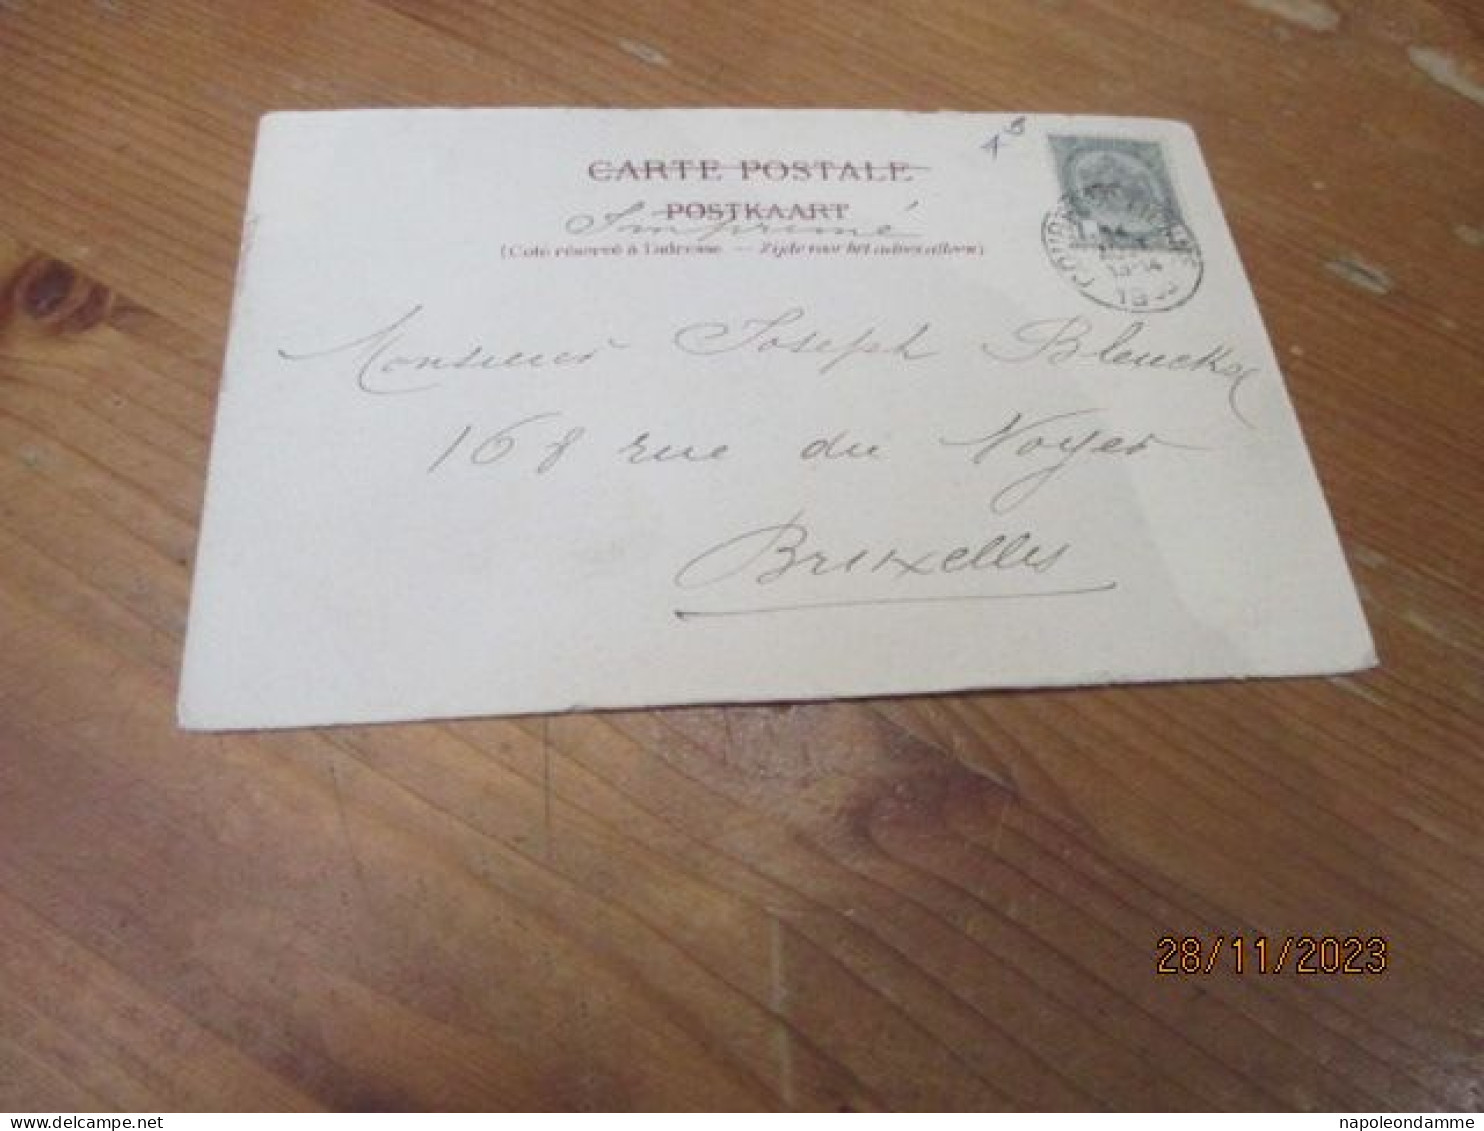 CARTE POSTALE
POSTKAART
Imprimé
(Côté réservé à l'adresse — Zijde voor het adres alleen)
Monsieur Joseph
168 rue du Noyer
Bruxelles
28/11/2023
napoleondamme